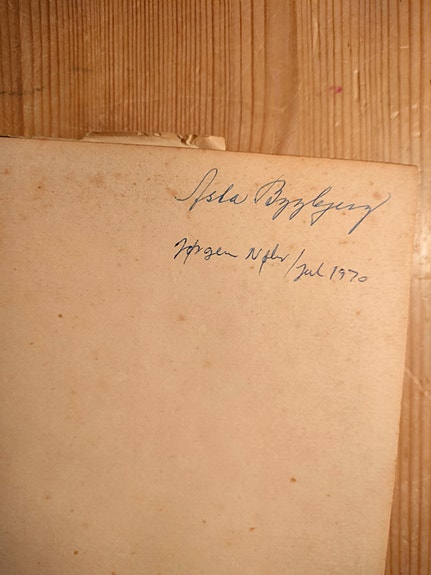 Asta Bygbjerg
Jørgen Nøhr / Jul 1970